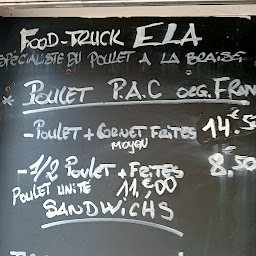 FOOD-TRUCK ELA
SPECIALISTE DU POULET A LA BRAISE
* POULET P.A.C ORG.FRAN
- POULET + CORNET FRITES 14€5
MOYEN
- 1/2 POULET + FRITES 8,50
POULET UNITE 11,€00
SANDWICHS